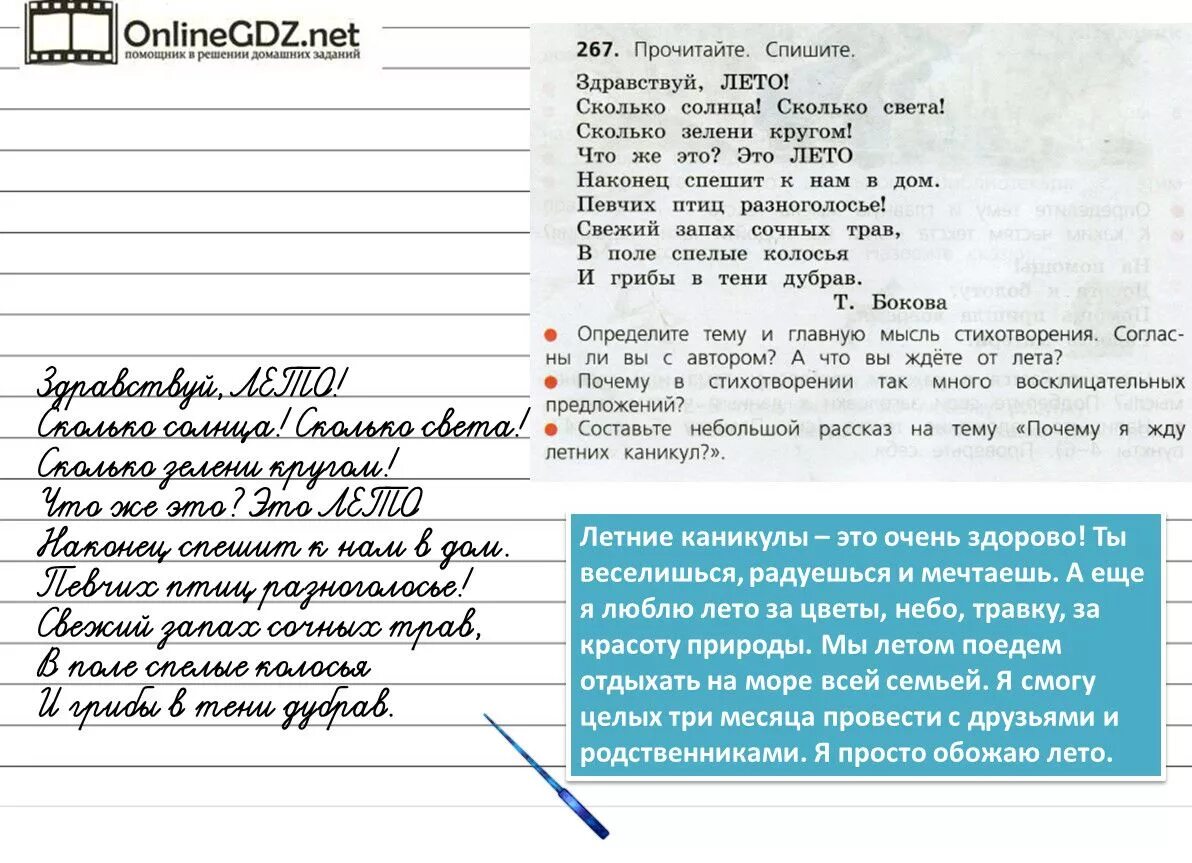 OnlineGDZ.net
помощник в решении домашних заданий
267. Прочитайте. Спишите.
Здравствуй, ЛЕТО!
Сколько солнца! Сколько света!
Сколько зелени кругом!
Что же это? Это ЛЕТО
Наконец спешит к нам в дом.
Певчих птиц разноголосье!
Свежий запах сочных трав,
В поле спелые колосья
И грибы в тени дубрав.
Т. Бокова
● Определите тему и главную мысль стихотворения. Соглас-
ны ли вы с автором? А что вы ждёте от лета?
● Почему в стихотворении так много восклицательных
предложений?
● Составьте небольшой рассказ на тему «Почему я жду
летних каникул?».
Здравствуй, ЛЕТО!
Сколько солнца! Сколько света!
Сколько зелени кругом!
Что же это? Это ЛЕТО
Наконец спешит к нам в дом.
Певчих птиц разноголосье!
Свежий запах сочных трав,
В поле спелые колосья
И грибы в тени дубрав.
Летние каникулы – это очень здорово! Ты
веселишься, радуешься и мечтаешь. А еще
я люблю лето за цветы, небо, травку, за
красоту природы. Мы летом поедем
отдыхать на море всей семьей. Я смогу
целых три месяца провести с друзьями и
родственниками. Я просто обожаю лето.